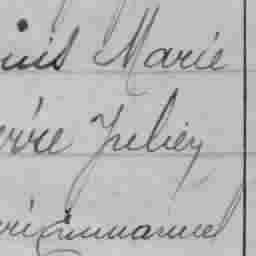 uis Marie
erre Julien
ri Emmanuel